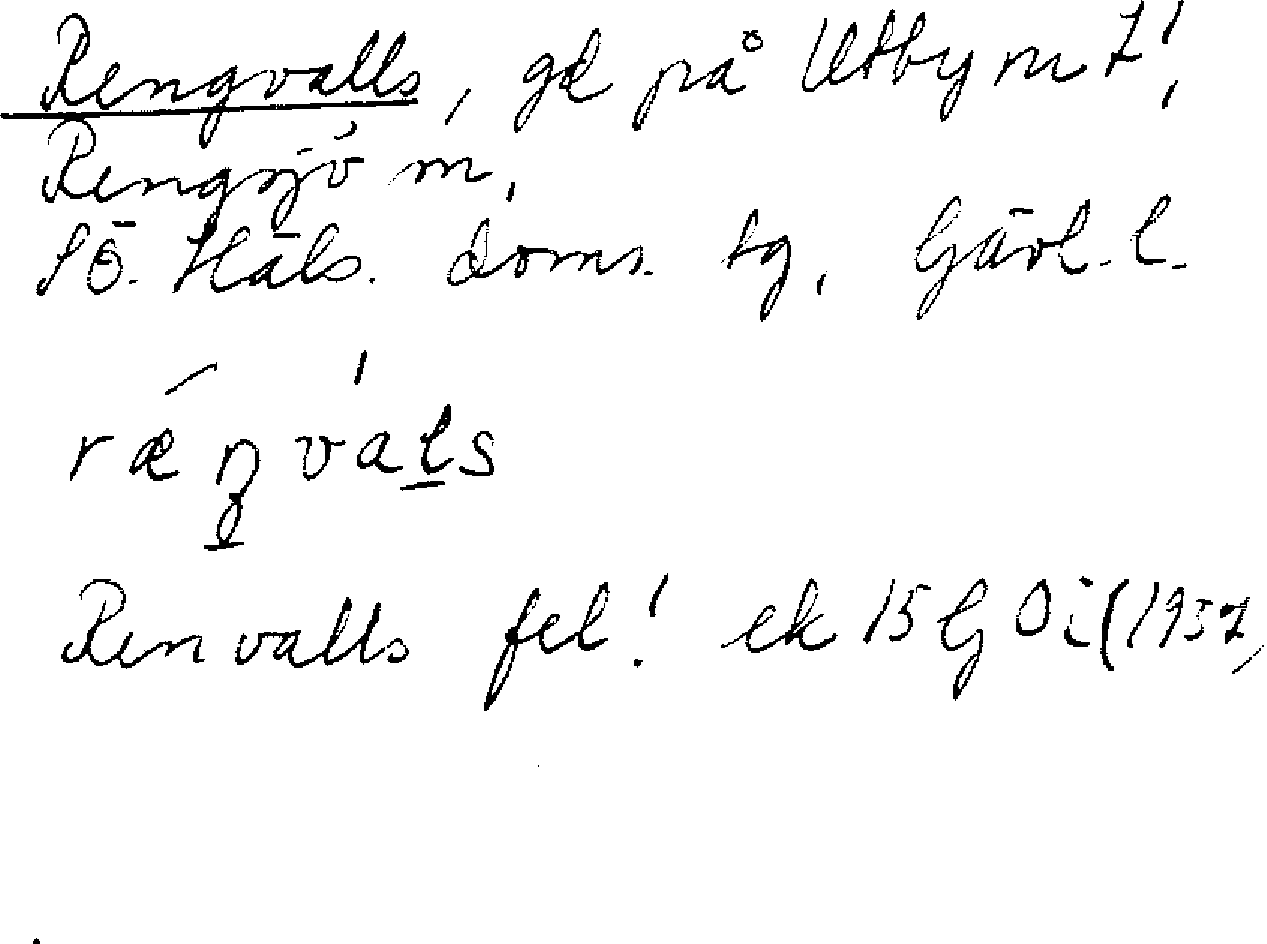 Rengvalls, gd på Utby nr 7!,
Rengsjö sn,
SÖ. Häls. doms. tg, Gävl. l.
ræŋvals
Renvalls fel! ek 15G 0i (1957)